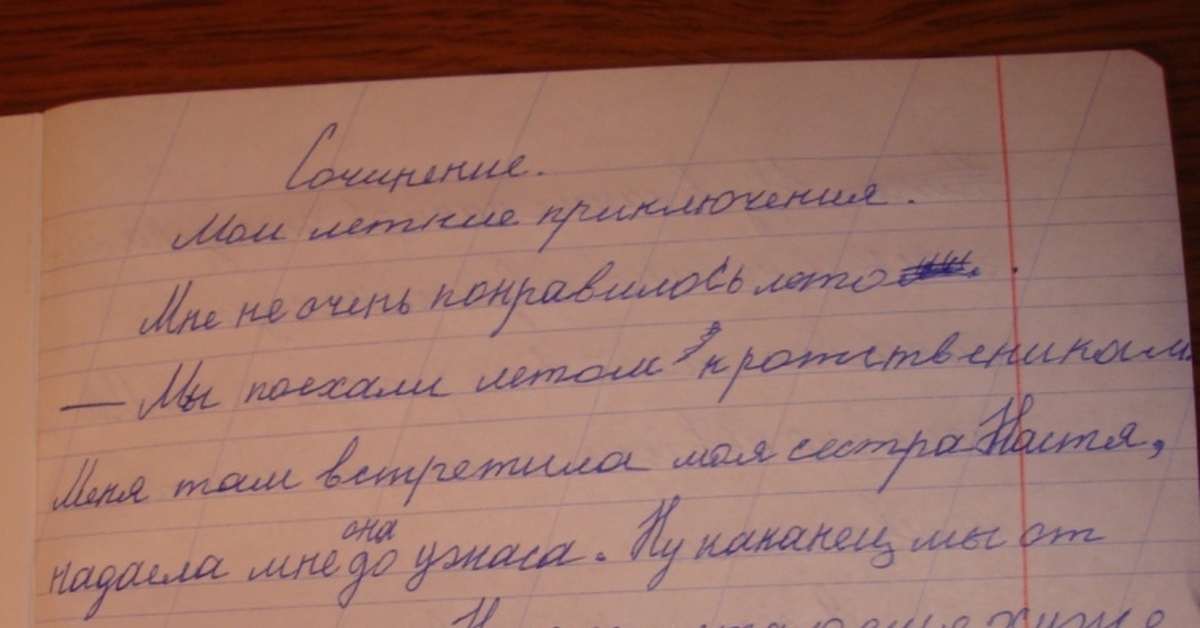 Сочинение.
Мои летние приключения.
Мне не очень понравилось лето
— Мы поехали летом к ротственикам.
Меня там встретила моя сестра Настя,
она
надаела мне до ужаса. Ну наканец мы от